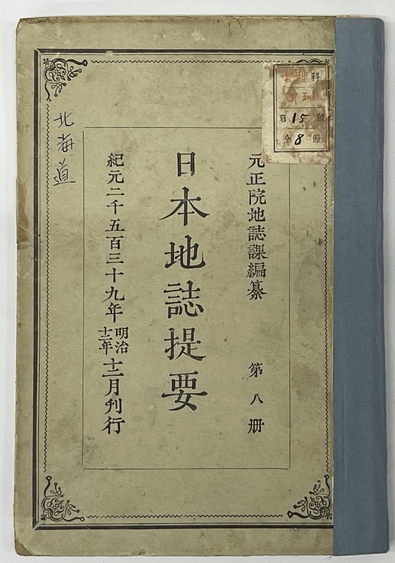 元正院地誌課編纂 第八册
日本地誌提要
紀元二千五百三十九年 明治十二年 十二月刊行
北海道
科
第15號
全8冊